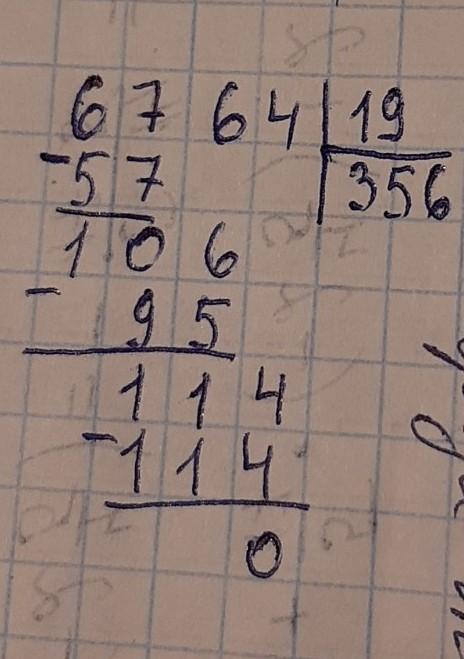 6764|19
-57 |356
106
- 95
114
-114
0